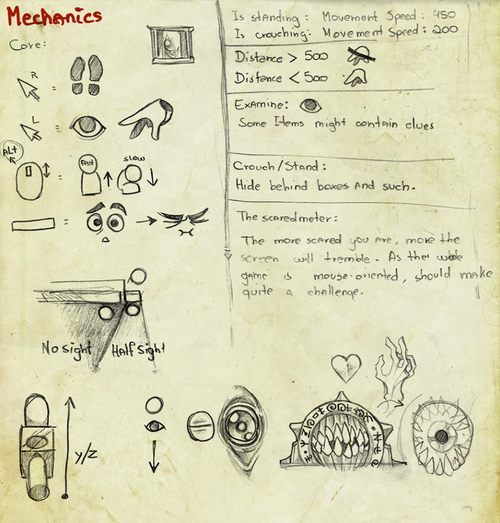 Mechanics
Core:
R
=
L
=
ALT
=
FAST
SLOW
=
No sight
Half sight
y/z
Is standing: Movement Speed: 450
Is crouching: Movement Speed: 200
Distance > 500
Distance < 500
Examine:
Some Items might contain clues
Crouch/Stand:
Hide behind boxes and such.
The scaredmeter:
The more scared you are, more the
screen will tremble. As the whole
game is mouse-oriented, should make
quite a challenge.